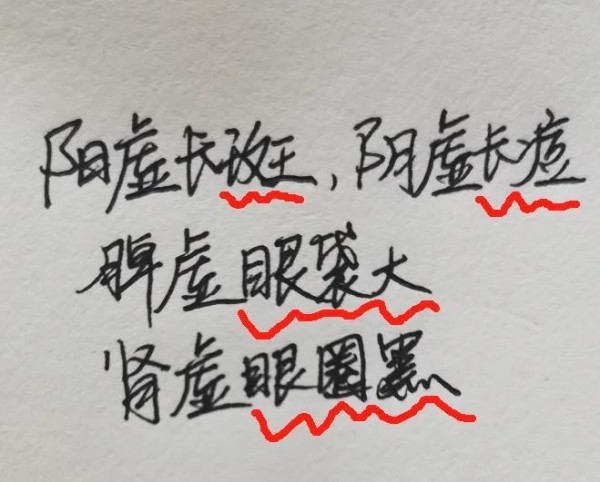 阳虚长斑，阴虚长痘
脾虚眼袋大
肾虚眼圈黑